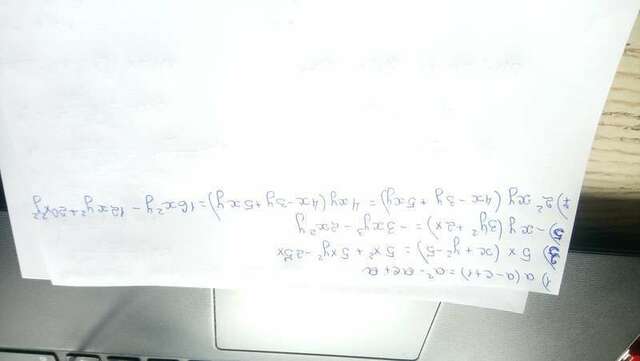 1) a(a-c+1) = a² - ac + a
3) 5x (x + y² - 5) = 5x² + 5xy² - 25x
5) -xy (3y² + 2x) = -3xy³ - 2x²y
7) 2² xy (4x - 3y + 5xy) = 4xy (4x - 3y + 5xy) = 16x²y - 12xy² + 20x²y²